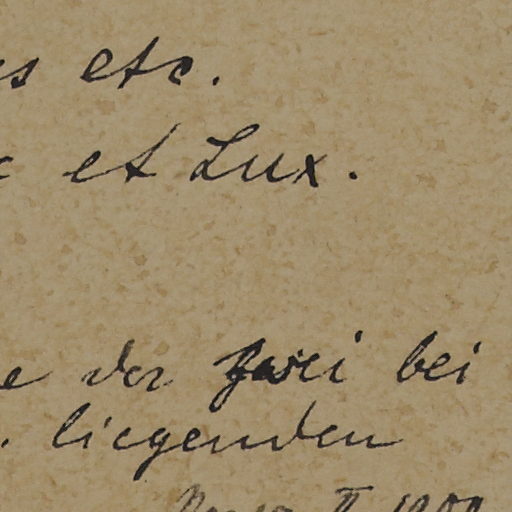 s etc.
c et Lux.
e der zwei bei
. liegenden
II